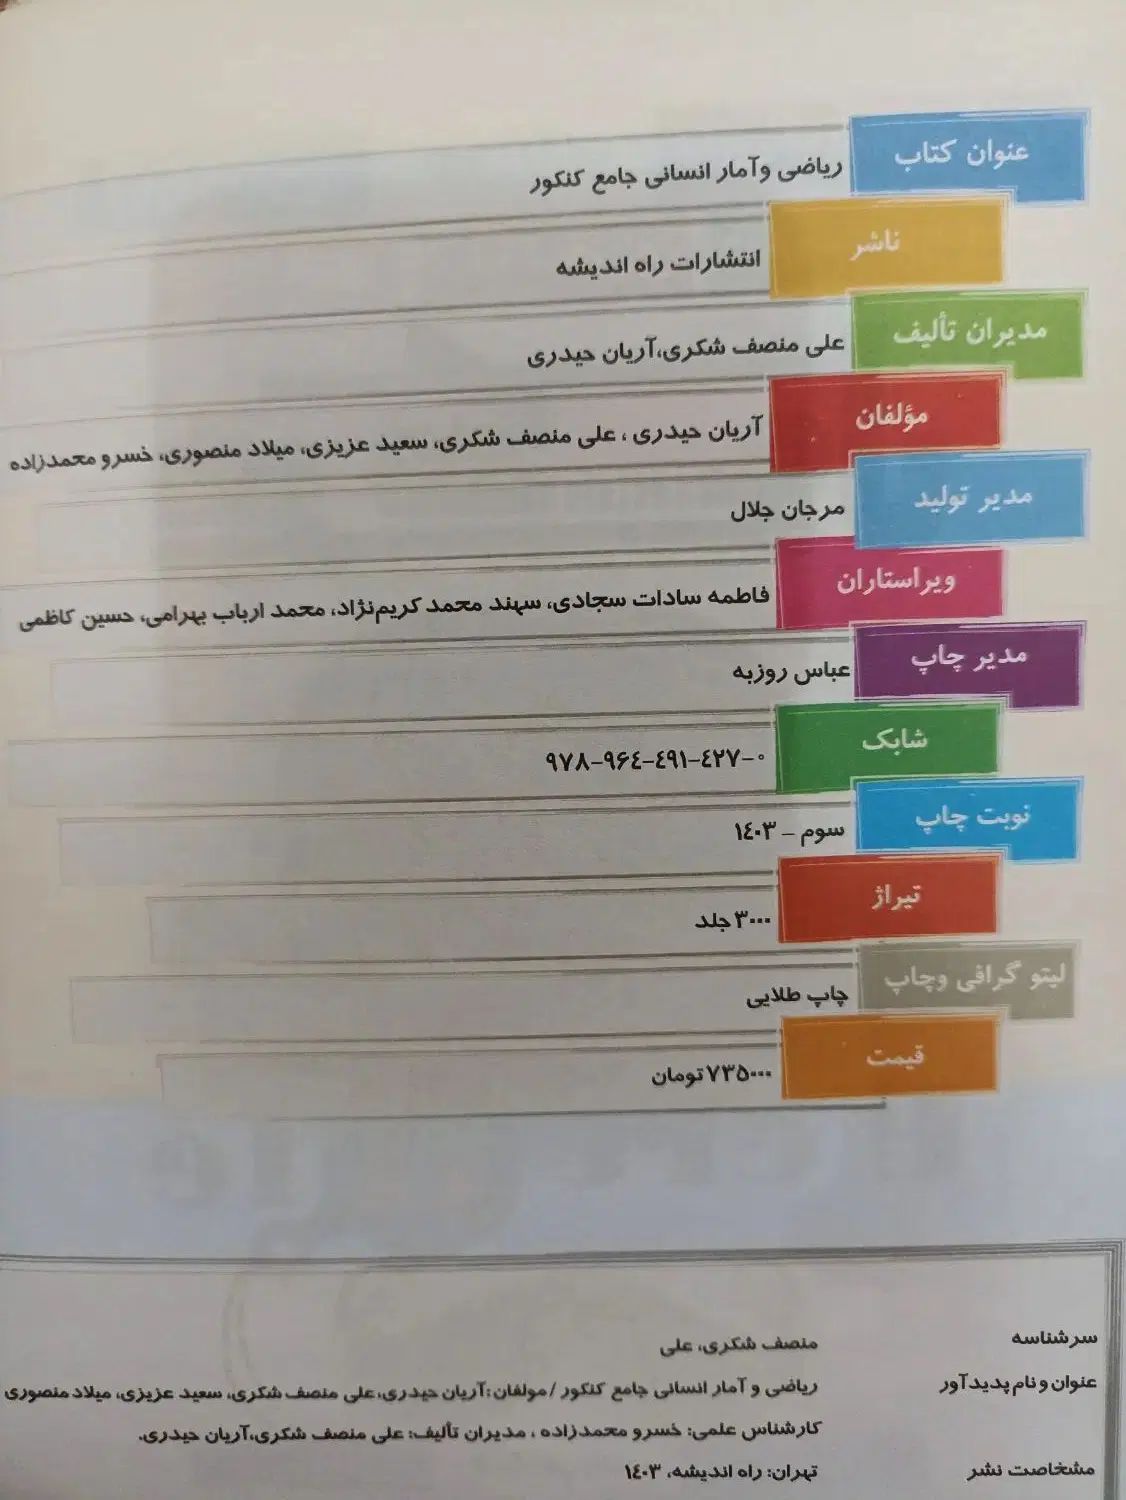 عنوان کتاب ریاضی وآمار انسانی جامع کنکور
ناشر انتشارات راه اندیشه
مدیران تألیف علی منصف شکری،آریان حیدری
مؤلفان آریان حیدری ، علی منصف شکری، سعید عزیزی، میلاد منصوری، خسرو محمدزاده
مدیر تولید مرجان جلال
ویراستاران فاطمه سادات سجادی، سهند محمد کریم‌نژاد، محمد ارباب بهرامی، حسین کاظمی
مدیر چاپ عباس روزبه
شابک ۹۷۸-۹۶۴-۴۹۱-۴۲۷-۰
نوبت چاپ سوم - ۱۴۰۳
تیراژ ۳۰۰۰ جلد
لیتو گرافی وچاپ چاپ طلایی
قیمت ۷۳۵۰۰۰ تومان
سرشناسه منصف شکری، علی
عنوان و نام پدیدآور ریاضی و آمار انسانی جامع کنکور / مولفان :آریان حیدری، علی منصف شکری، سعید عزیزی، میلاد منصوری
کارشناس علمی: خسرو محمدزاده ، مدیران تألیف: علی منصف شکری،آریان حیدری.
مشخاصت نشر تهران: راه اندیشه، ۱۴۰۳